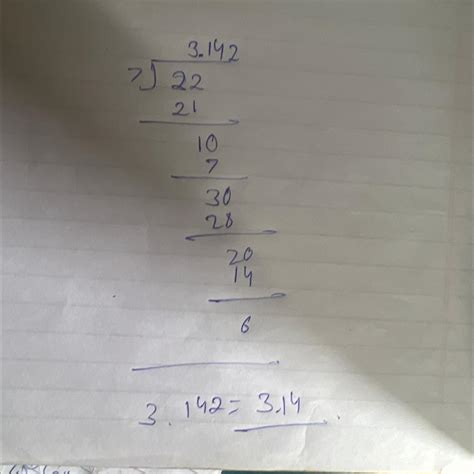 3.142
7)22
21
10
7
30
28
20
14
6
3.142=3.14